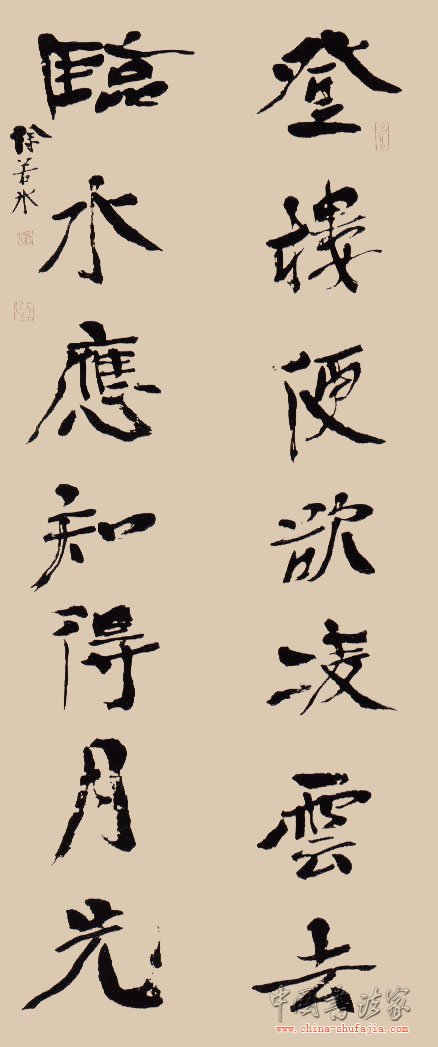 登樓便欲凌雲去
臨水應知得月先
徐若冰
中国书法家
www.china-shufajia.com